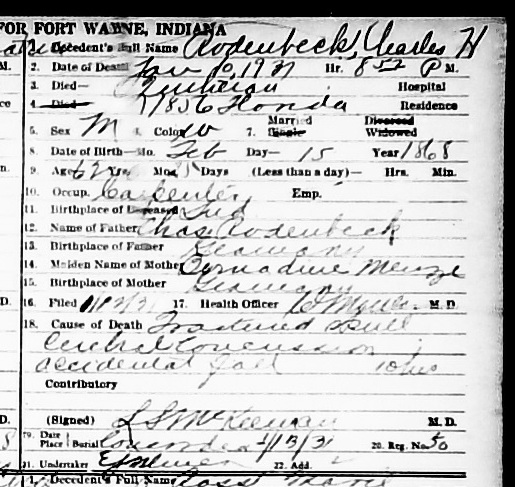 FOR FORT WAYNE, INDIANA
1. Decedent's Full Name Rodenbeck, Charles H
2. Date of Death Jan 10, 1931 Hr. 8 52 P M.
3. Died— Lutheran Hospital
4. Died— 1856 Florida Residence
5. Sex M 6. Color W 7. Married Single Divorced Widowed
8. Date of Birth—Mo. Feb Day— 15 Year 1868
9. Age 62 Yrs. Mos. Days (Less than a day)— Hrs. Min.
10. Occup. Carpenter Emp.
11. Birthplace of Deceased Ind
12. Name of Father Chas Rodenbeck
13. Birthplace of Father Germany
14. Maiden Name of Mother Bernadine Menze
15. Birthplace of Mother Germany
16. Filed 17. Health Officer M. D.
18. Cause of Death Fractured Skull
Cerebral Concussion
accidental fall 10 hrs
Contributory
(Signed) L S McKeeman M. D.
19. Date Place Burial Concordia 1/13/31 20. Reg. No. 50
21. Undertaker 22. Add.
1. Decedent's Full Name Ross